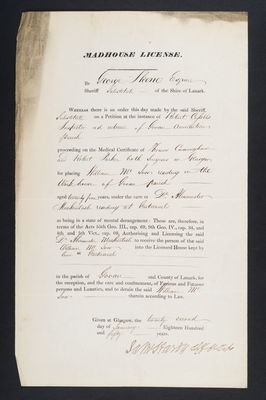 MADHOUSE LICENSE.
By George Skene Esquire
Sheriff Substitute of the Shire of Lanark.
WHEREAS there is an order this day made by the said Sheriff
Substitute on a Petition at the instance of Robert
Inspector ad interim of Govan Combination
parish
proceeding on the Medical Certificate of Thomas Cunningham
and Robert both Surgeons in Glasgow
for placing William Mc residing in the
Workhouse of Govan parish
aged twenty five years, under the care to Dr Alexander
Mackintosh residing at Gartnavel
as being in a state of mental derangement: These are, therefore, in
terms of the Acts 55th Geo. III., cap. 69, 9th Geo. IV., cap. 34, and
4th and 5th Vict., cap. 60, Authorising and Licensing the said
Dr Alexander Mackintosh to receive the person of the said
William Mc into the Licensed House kept by
him at Gartnavel
in the parish of Govan and County of Lanark, for
the reception, and the care and confinement, of Furious and Fatuous
persons and Lunatics, and to detain the said William Mc
therein according to Law.
Given at Glasgow, the twenty second
day of January Eighteen Hundred
and fifty years.